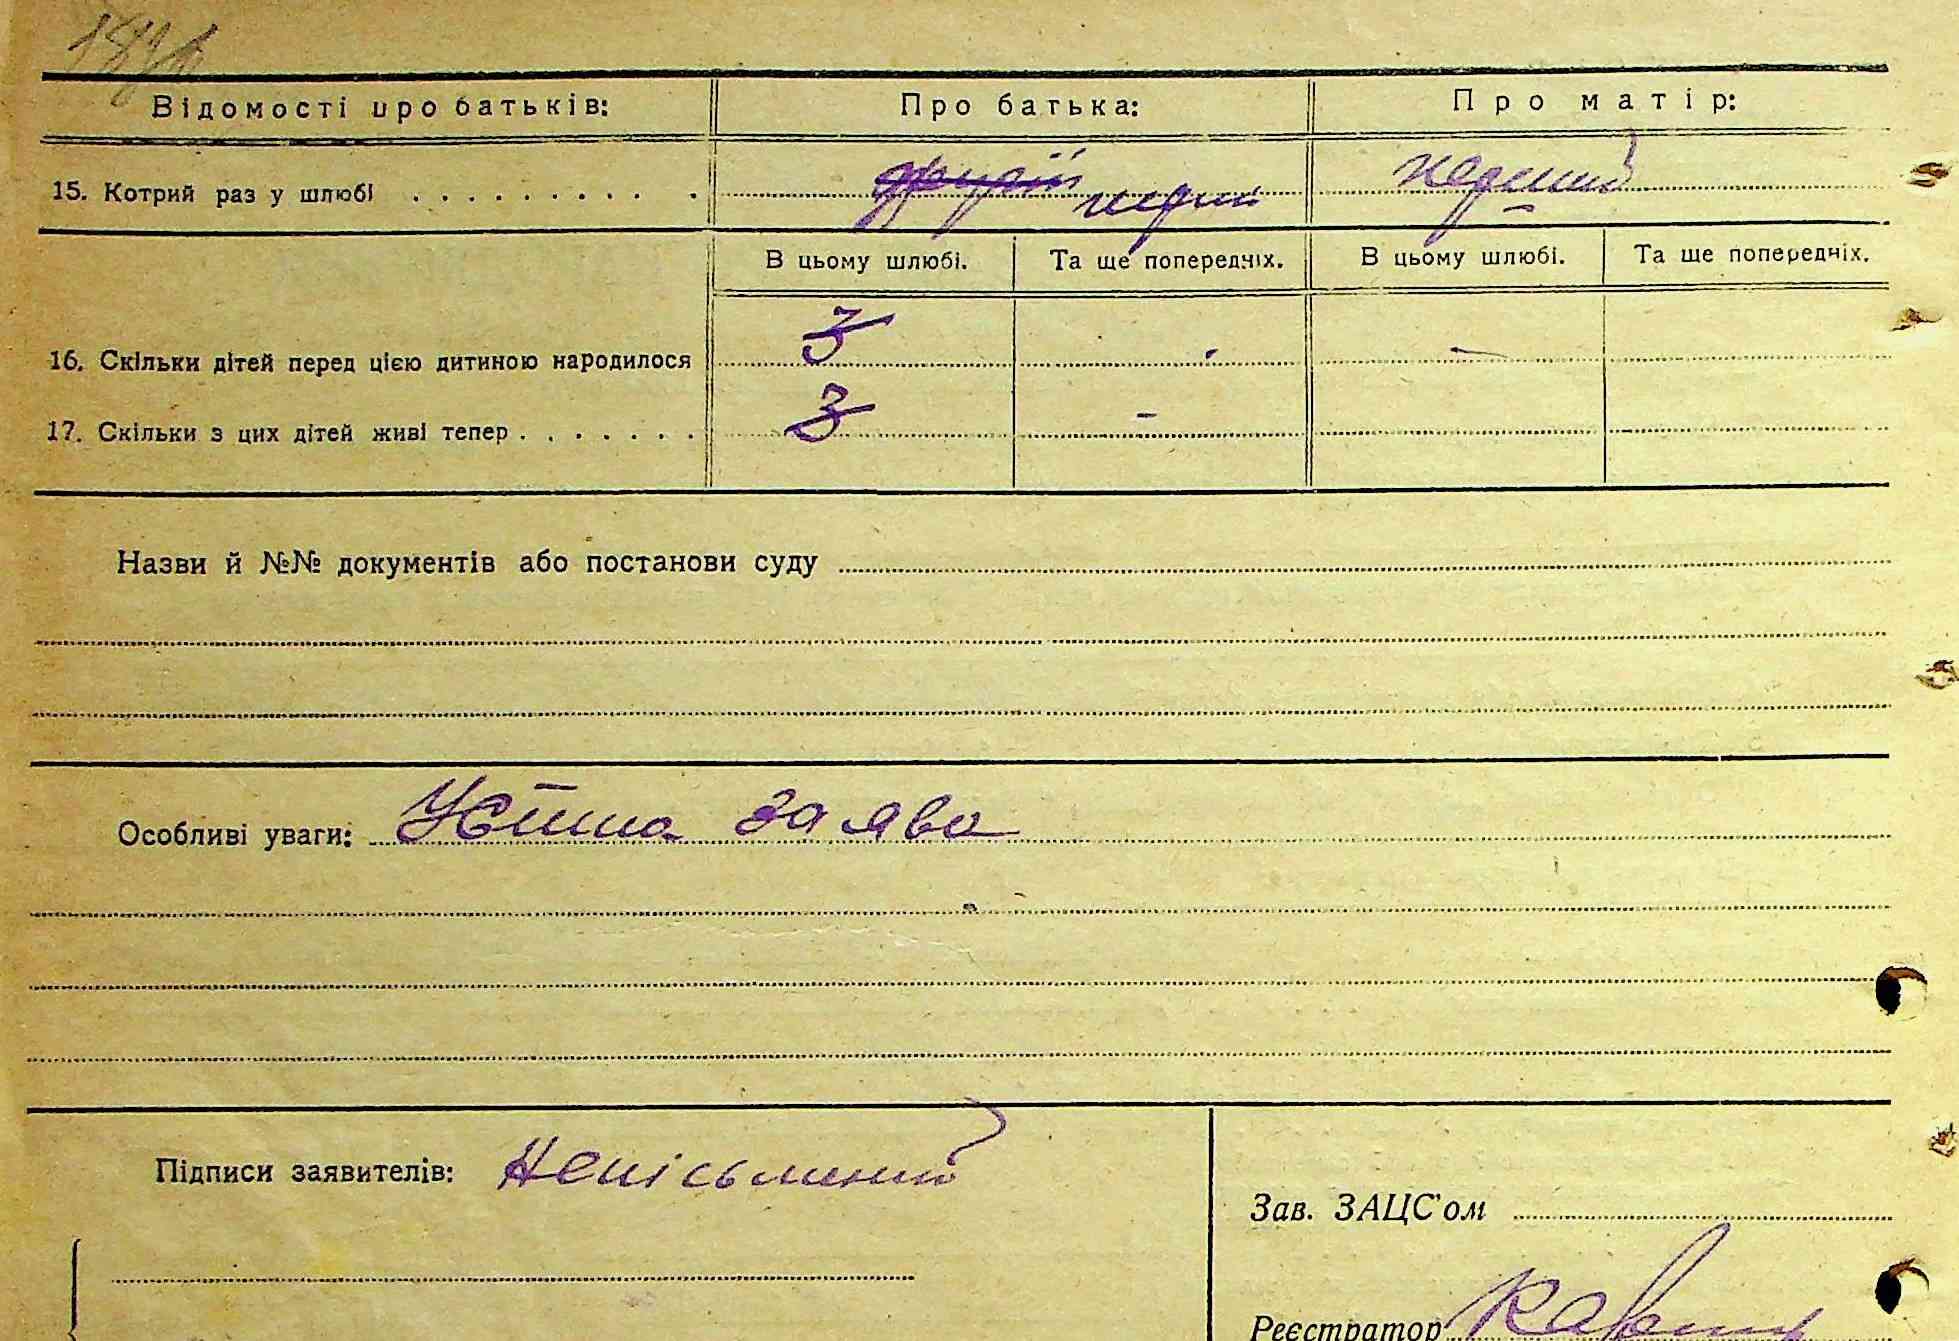 Відомості про батьків: Про батька: Про матір:
15. Котрий раз у шлюбі . . . . . . . . . . другій перий перший
В цьому шлюбі. Та ще попередніх. В цьому шлюбі. Та ще попередніх.
16. Скільки дітей перед цією дитиною народилося 3 -
17. Скільки з цих дітей живі тепер . . . . . . . 3 -
Назви й №№ документів або постанови суду
Особливі уваги: Устна заява
Підписи заявителів: Непісьменний
Зав. ЗАЦС'ом
Реєстратор